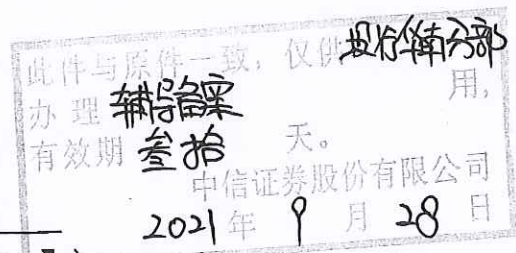 此件与原件一致，仅供投行华南分部
办理辅导备案用，
有效期叁拾天。
中信证券股份有限公司
2021年9月28日